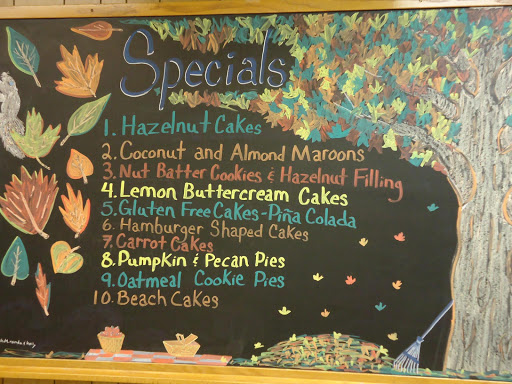 Specials
1. Hazelnut Cakes
2. Coconut and Almond Maroons
3. Nut Batter Cookies & Hazelnut Filling
4. Lemon Buttercream Cakes
5. Gluten Free Cakes - Piña Colada
6. Hamburger Shaped Cakes
7. Carrot Cakes
8. Pumpkin & Pecan Pies
9. Oatmeal Cookie Pies
10. Beach Cakes